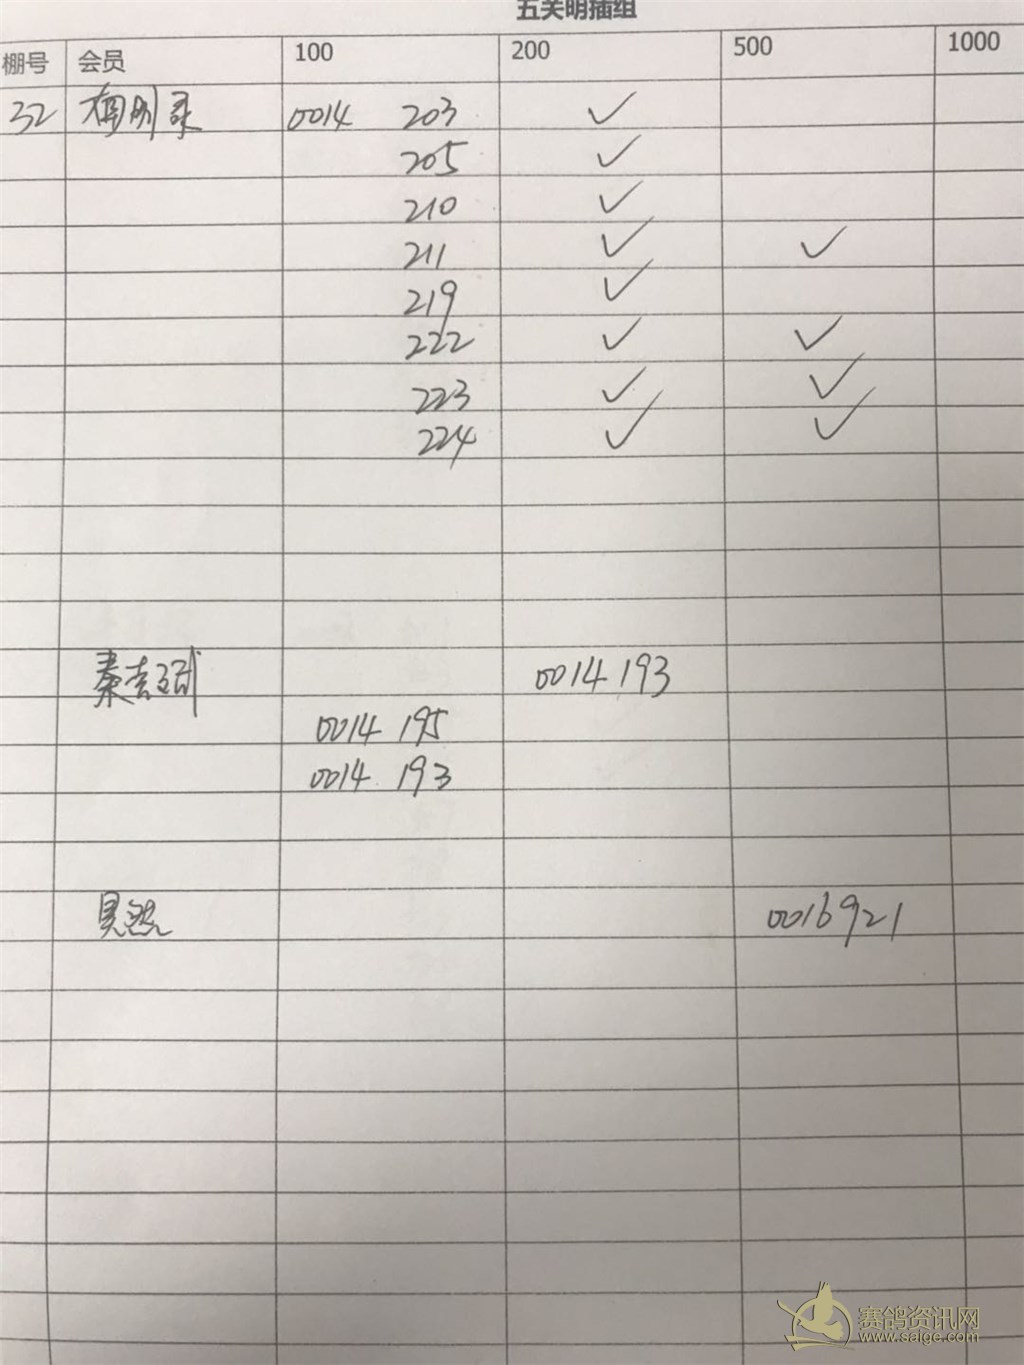 五关明插组
棚号 会员 100 200 500 1000
32 0014 203 ✓
205 ✓
210 ✓
211 ✓ ✓
219 ✓
222 ✓ ✓
223 ✓ ✓
224 ✓ ✓
秦吉 0014 193
0014 195
0014 193
0016921
赛鸽资讯网
www.saige.com